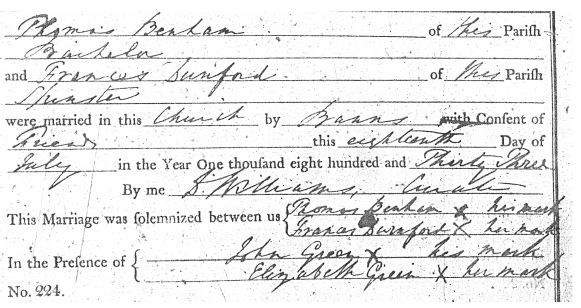 Thomas Benham of this Parish
Bachelor
and Frances Durnford of this Parish
Spinster
were married in this Church by Banns with Consent of
Friends this eighteenth Day of
July in the Year One thousand eight hundred and Thirty Three
By me Williams, Curate
This Marriage was solemnized between us { Thomas Benham x his mark
Frances Durnford x her mark
In the Presence of { John Green x his mark
Elizabeth Green x her mark
No. 224.